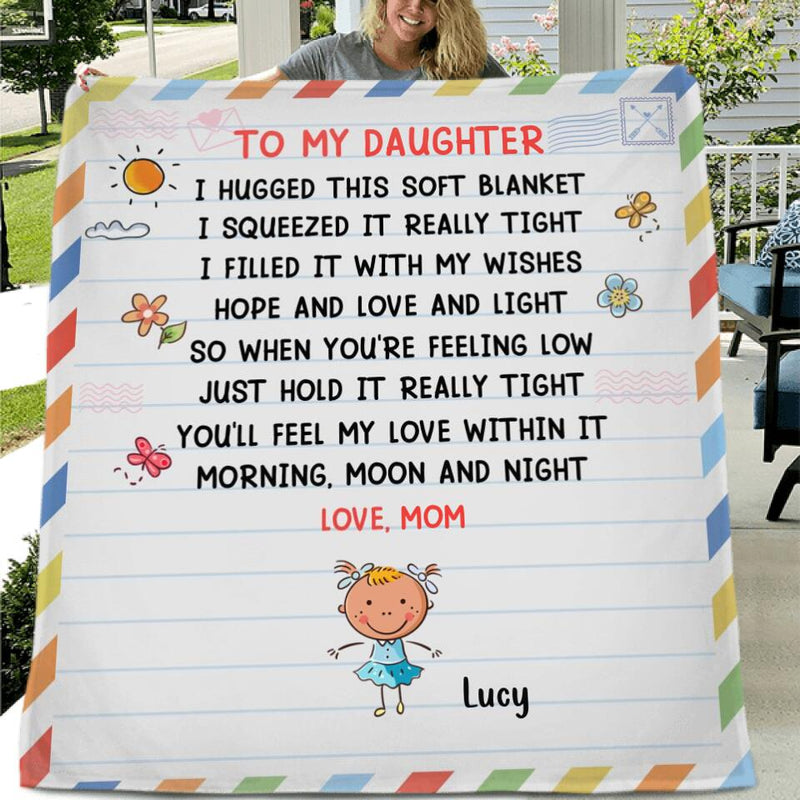 TO MY DAUGHTER
I HUGGED THIS SOFT BLANKET
I SQUEEZED IT REALLY TIGHT
I FILLED IT WITH MY WISHES
HOPE AND LOVE AND LIGHT
SO WHEN YOU'RE FEELING LOW
JUST HOLD IT REALLY TIGHT
YOU'LL FEEL MY LOVE WITHIN IT
MORNING, MOON AND NIGHT
LOVE, MOM
Lucy